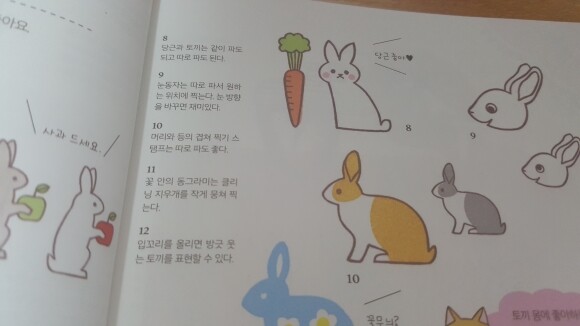 아요.
사과 드세요.
8
당근과 토끼는 같이 파도
되고 따로 파도 된다.
9
눈동자는 따로 파서 원하
는 위치에 찍는다. 눈 방향
을 바꾸면 재미있다.
10
머리와 등의 겹쳐 찍기 스
탬프는 따로 파도 좋다.
11
꽃 안의 동그라미는 클리
닝 지우개를 작게 뭉쳐 찍
는다.
12
입꼬리를 올리면 방긋 웃
는 토끼를 표현할 수 있다.
당근 좋아♥
8
9
10
토끼 몸에 좋아하